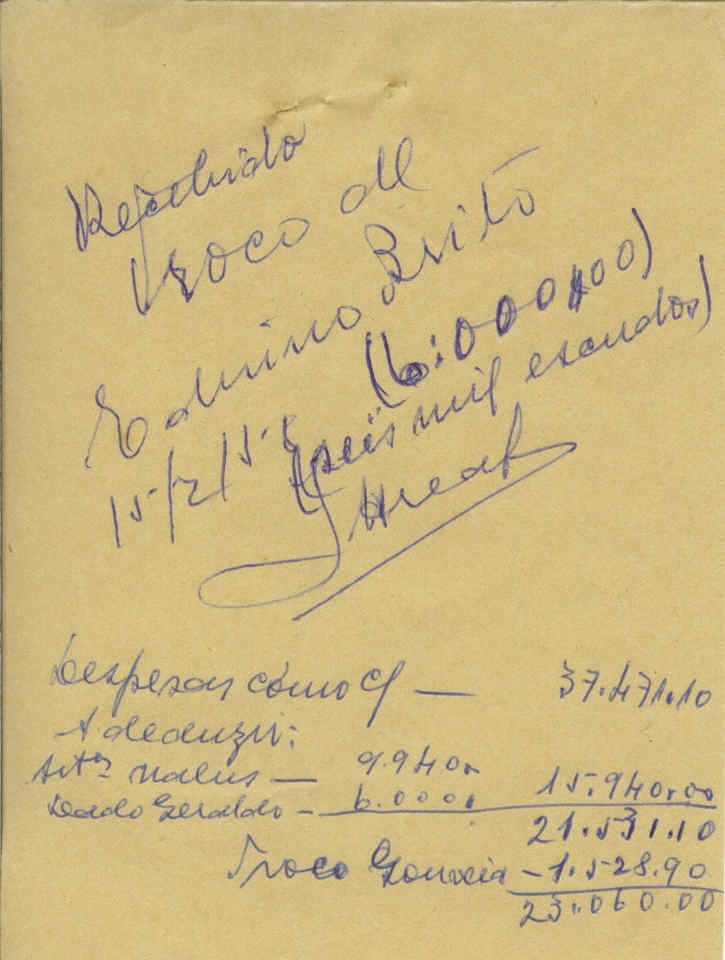 Recebido
troco de
Edmino Brito
15/2/5 (6:000$00)
(seis mil escudos)
Despesas como — 37.471.10
A deduzir:
9.940. 15.940.00
Dado Geraldo - 6.000.
21.531.10
Troco Gouveia - 1.528.90
23.060.00